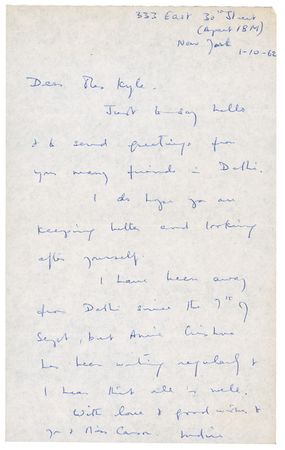 333 East 30th Street
(Apart 18M)
New York
1-10-62
Dear Mrs Kyle.
Just to say hello
& to send greetings from
your many friends in Delhi.
I do hope you are
keeping better and looking
after yourself.
I have been away
from Delhi since the 7th of
Sept, but Amie
has been writing regularly &
I hear that all is well.
With love & good wishes to
you & Miss Carson. Indira